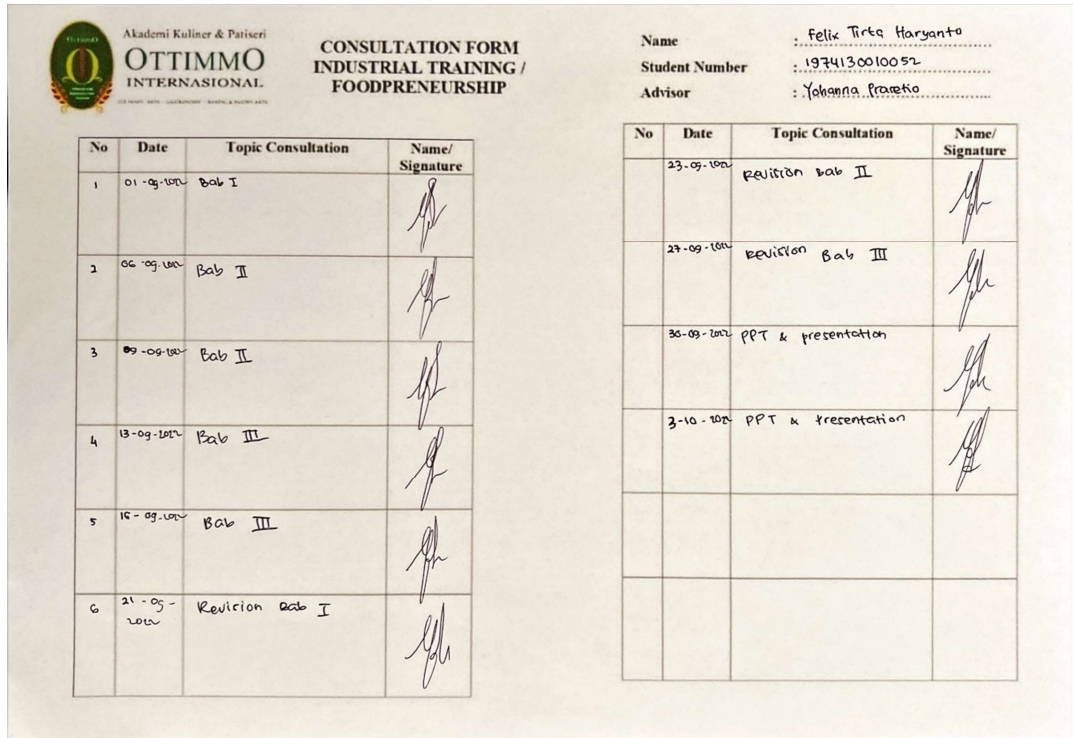 Akademi Kuliner & Patiseri
OTTIMMO
INTERNASIONAL
CONSULTATION FORM
INDUSTRIAL TRAINING /
FOODPRENEURSHIP
Name : Felix Tirta Haryanto
Student Number : 1974130010052
Advisor : Yohanna Prasetio
No Date Topic Consultation Name/
Signature
1 01-09-2022 Bab I
2 06-09-2022 Bab II
3 09-09-2022 Bab II
4 13-09-2022 Bab III
5 16-09-2022 Bab III
6 21-09-
2022 Revision Bab I
No Date Topic Consultation Name/
Signature
23-09-2022 Revision Bab II
27-09-2022 Revision Bab III
30-09-2022 PPT & presentation
3-10-2022 PPT & Presentation